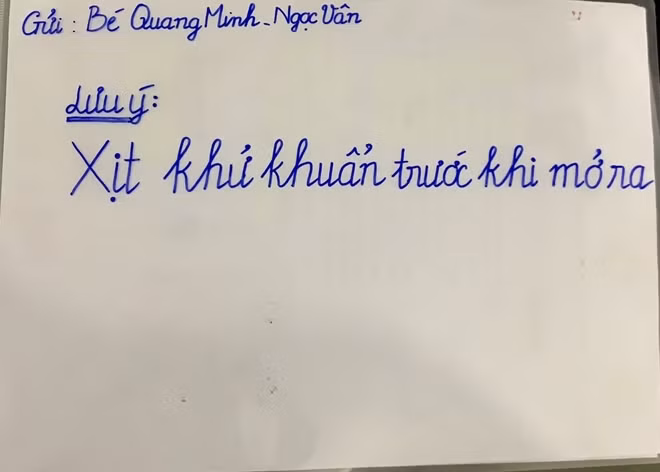 Gửi : Bé Quang Minh - Ngọc Vân
Lưu ý:
Xịt khử khuẩn trước khi mở ra